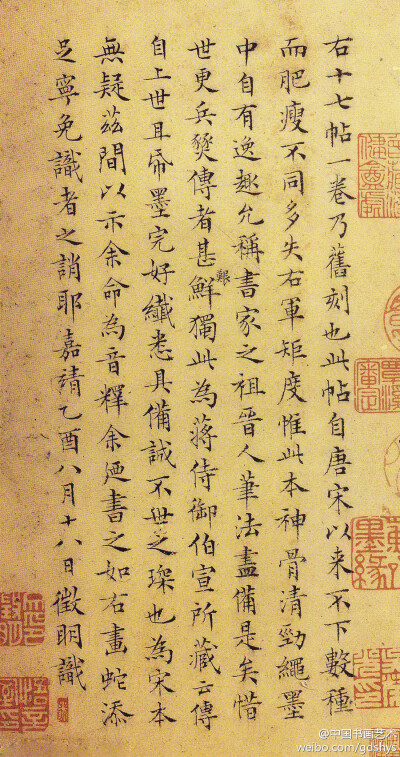 右十七帖一卷乃舊刻也此帖自唐宋以来不下數種
而肥瘦不同多失右軍矩度惟此本神骨清勁繩墨
中自有逸趣允稱書家之祖晉人筆法盡備是矣惜
世更兵燹傳者甚鮮獨此為蔣侍御伯宣所藏云傳
自上世且帋墨完好纖悉具備誠不世之琛也為宋本
無疑茲間以示余命為音釋余廼書之如右畫蛇添
足寧免識者之誚耶嘉靖乙酉八月十八日徵明識
墨緣
@中国书画艺术
weibo.com/gdshys